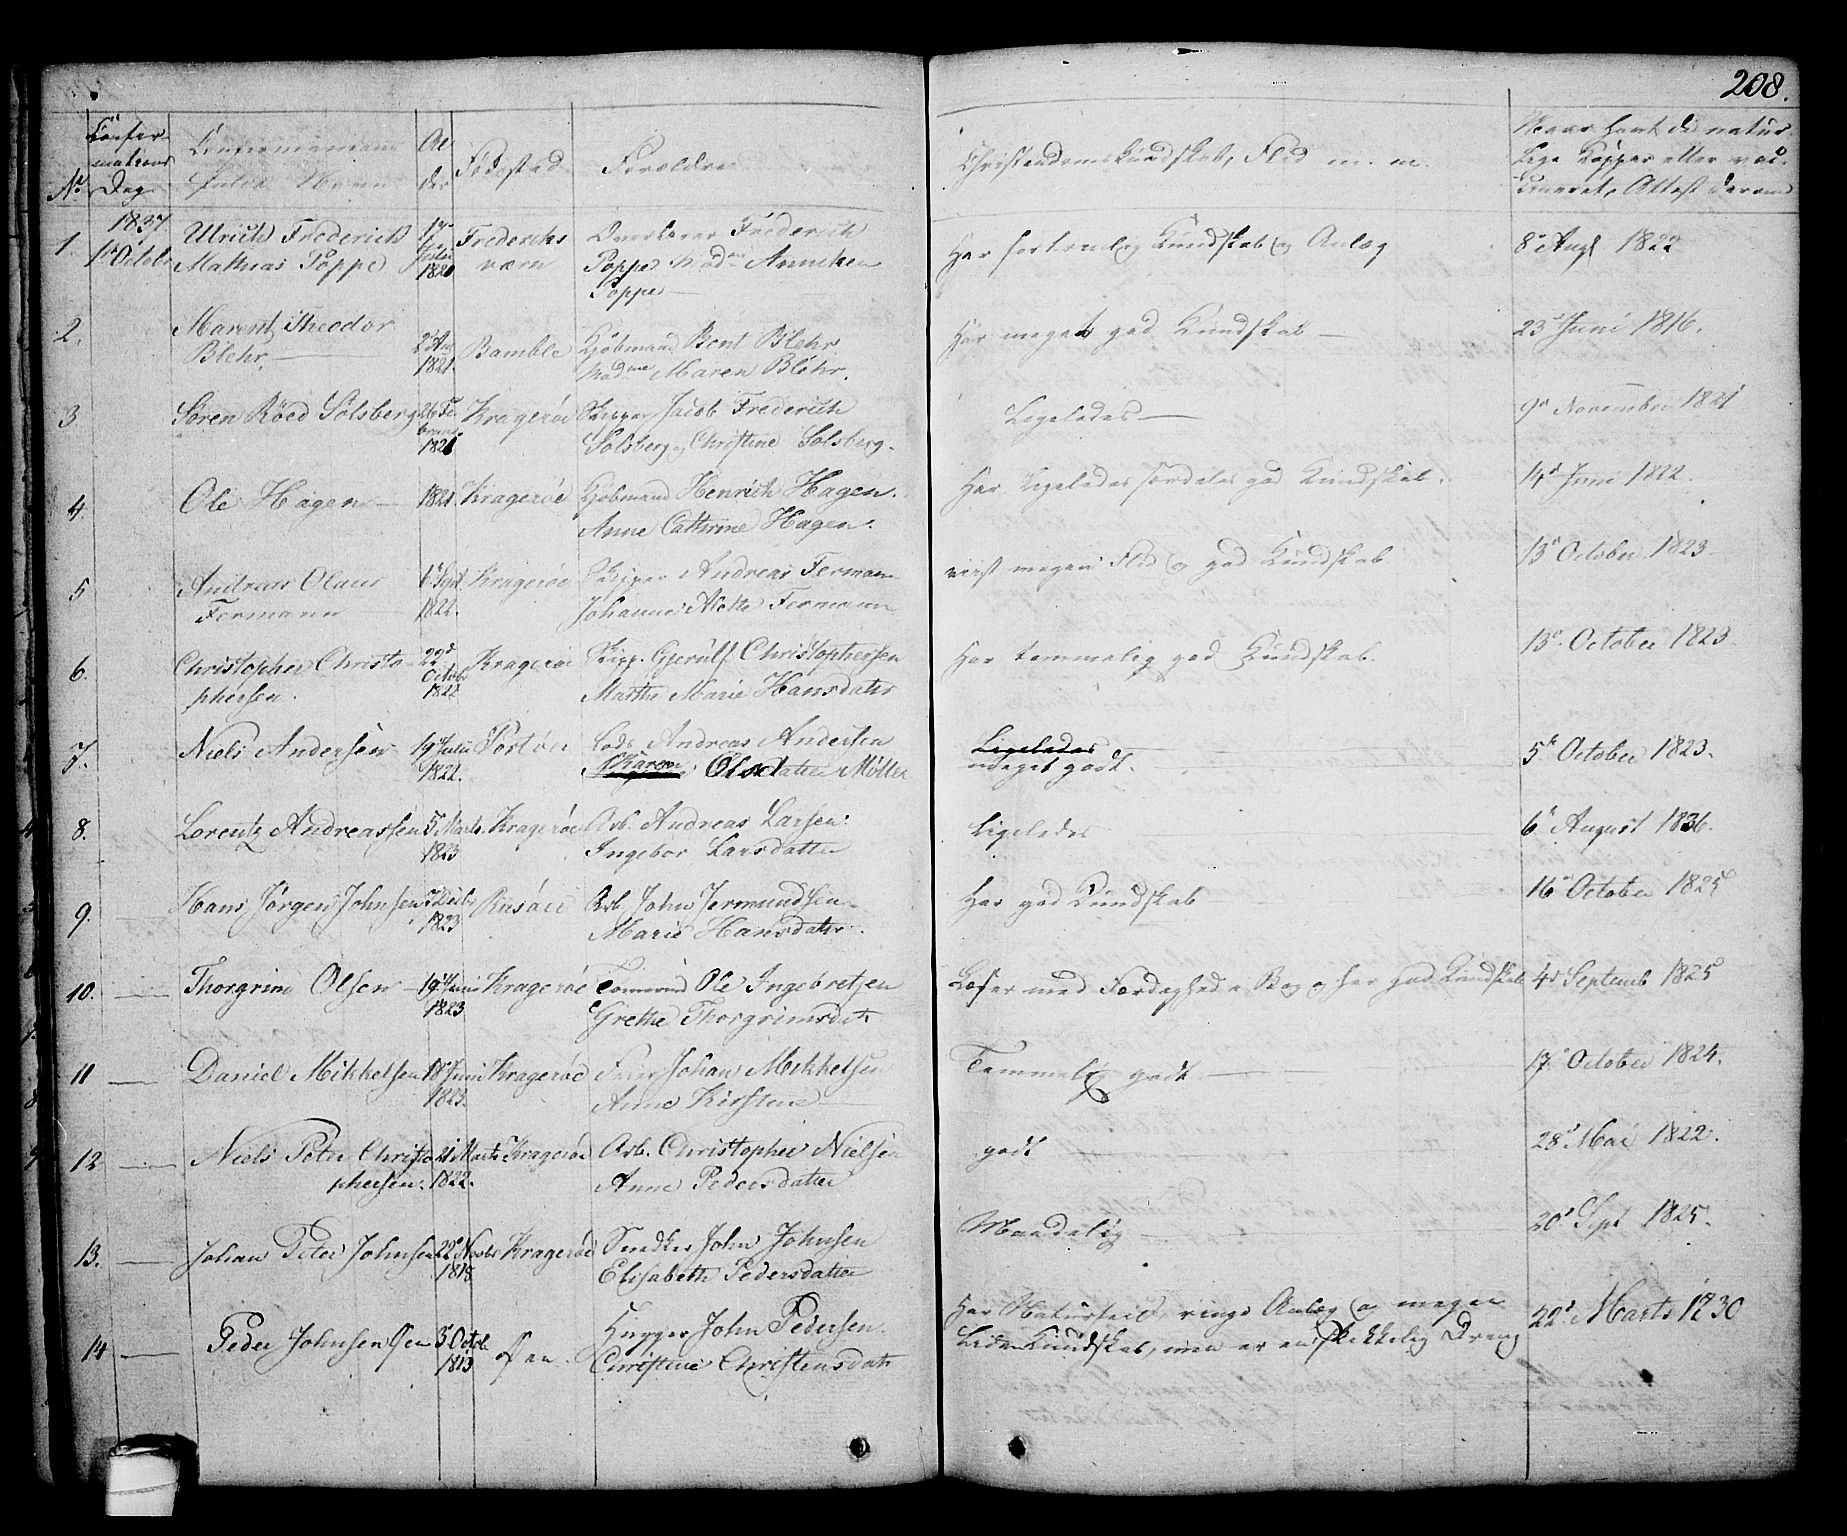 208.
Confir-
mations
Dag
No
Confirmandens
fulde Navn
Al
der
Fødested
Forældre
Christendomskundskab, Flid m. m.
Naar havt de natur-
lige Kopper eller vac-
cineret, Attest derom
1837
1. 1st Octobr Ulrich Frederich
Mathias Poppe
1821
Frederiks
værn
Overlærer Frederich
Poppe Madme Anniken
Poppe
Har fortrinlig Kundskab og Anlæg
8de Augt 1822
2. Marentz Theodor
Blehr.
1821.
Bamble
Kjøbmand Bent Blehr
Madme Maren Blehr.
Har meget god Kundskab
23de Juni 1816.
3 Søren Röed Solsberg
26 Fe
bruar
1821
Kragerøe
Skipper Jacob Frederich
Solsberg og Christine Solsberg.
Ligeledes
9de November 1821
4. Ole Hagen
1821.
Kragerøe
Kjøbmand Henrich Hagen.
Anne Cathrine Hagen.
Har Ligeledes særdeles god Kundskab.
14d Juni 1822.
5 Andreas Olaus
Fermann
6te Sept
1822.
Kragerøe
Skipper Andreas Fermann
Johanne Alette Fermann
viist megen Flid og god Kundskab
13de October 1823
6. Christopher Christo
phersen.
22d
Octob
1822
Kragerøe
Skipp. Gjerulf Christophersen
Marthe Marie Hansdatter
Har temmelig god Kundskab.
13de October 1823
7. Niels Andersen
19de Julii
1822.
Portøer
Lods Andreas Andersen
Karen Olsdatter Møller
Ligeledes
meget godt.
5te October 1823.
8. Lorentz Andreassen
5 Marts
1823
Kragerøe
Arb. Andreas Larsen.
Ingebor Larsdatter
Ligeledes
6te August 1836.
9. Hans Jørgen Johnsen
1823
Risøer
Arb John Jermundsen
Marie Hansdatter.
Har god Kundskab
16de October 1825
10. Thorgrim Olsen
19de Juni
1823
Kragerøe
Tømmermd Ole Ingebretsen
Grethe Thorgrimsdatr
Læser med Færdighed i Bog og har god Kundskab
4d Septemb 1825
11 Daniel Mikkelsen
18de Juni
1823.
Kragerøe
Johan Mikkelsen
Anne Kirstine
Temmelig godt
17de October 1824.
12 Niels Peter Christo
phersen.
21 Marts
1822.
Kragerøe
Arb. Christopher Nielsen
Anne Pedersdatter
godt
28de Mai 1822.
13. Johan Peter Johnsen
22de Novbr
1818.
Kragerøe
Snedker John Johnsen
Elisabeth Pedersdatter
Maadelig
20de Sept 1825.
14 Peder Johnsen Øen
3de Octbr
1813
Øen.
Hugger John Pedersen.
Christine Christensdatr
Har Naturfeil, ringe Anlæg og megen
Liden Kundskab, men er en skikkelig Dreng
22de Marts 1830